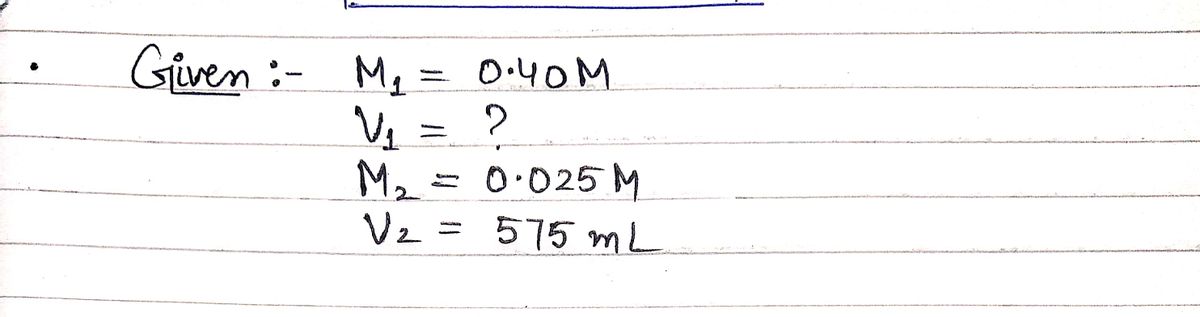 • Given :- M₁ = 0.40 M
V₁ = ?
M₂ = 0.025 M
V₂ = 575 mL